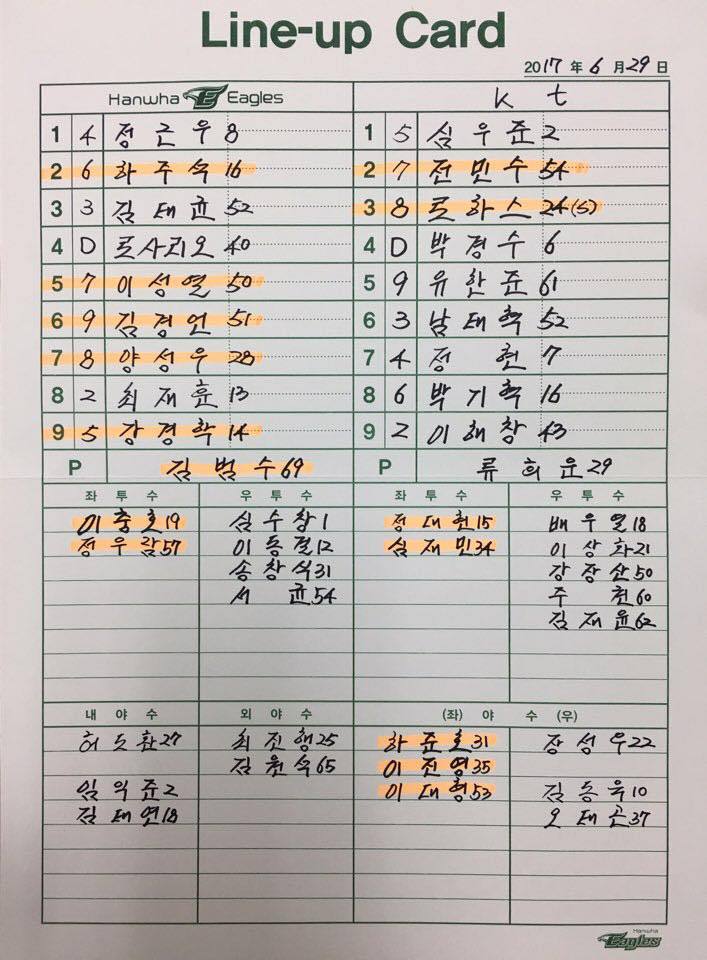 Line-up Card
2017 年 6 月 29 日
Hanwha Eagles
1 4 정근우 8
2 6 하주석 16
3 3 김태균 52
4 D 로사리오 40
5 7 이성열 50
6 9 김경언 51
7 8 양성우 28
8 2 최재훈 13
9 5 강경학 14
P 김범수 69
좌투수
이충호 19
정우람 57
우투수
심수창 1
이동걸 12
송창식 31
서균 54
내야수
허도환 27
임익준 2
김태연 18
외야수
최진행 25
김원석 65
kt
1 5 심우준 2
2 7 전민수 54
3 8 로하스 24(S)
4 D 박경수 6
5 9 유한준 61
6 3 남태혁 52
7 4 정현 7
8 6 박기혁 16
9 2 이해창 43
P 류희운 29
좌투수
정대현 15
심재민 34
우투수
배우열 18
이상화 21
강장산 50
주현 60
김재윤 62
(좌) 야수 (우)
하준호 31
이진영 35
이대형 53
장성우 22
김동욱 10
오태곤 37
Hanwha
Eagles